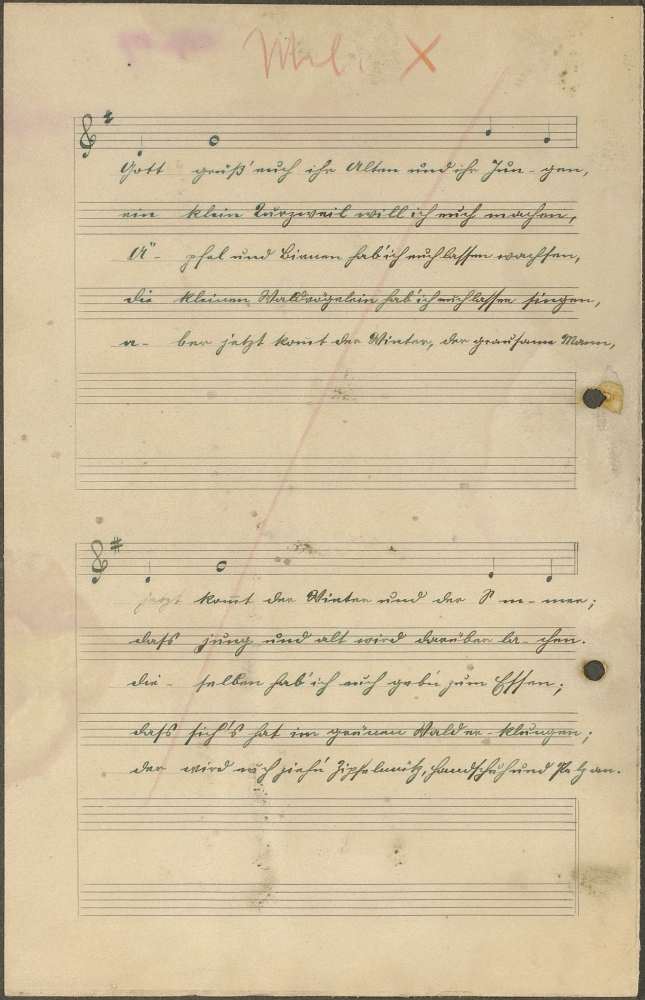 X
Gott grüß' euch ihr Alten und ihr Jun- gen,
ein klein Kurzweil will ich euch machen,
Ä- pfel und Birnen hab' ich euch lassen wachsen,
die kleinen Waldvögelein hab' ich euch lassen singen,
a- ber jetzt komt der Winter, der grausame Mann,
jetzt kom̄t der Winter und der S m- mer;
dass jung und alt wird darüber la- chen.
die- selben hab' ich euch geb'n zum Essen;
dass sich's hat im grünen Wald er- klungen;
der wird euch zieh'n Zipfelmütz, Handschuh und Pelz an.